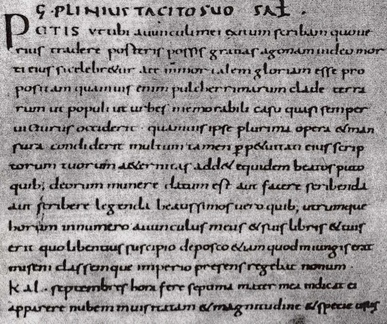 C·PLINIUS TACITO SUO SAL
PETIS ut tibi avunculi mei exitum scribam quo ve
rius tradere posteris possis gratias ago nam video mor
ti eius si celebretur a te inmortalem gloriam esse pro
positam quamvis enim pulcherrimarum clade terra
rum ut populi ut urbes memorabili casu quasi semper
victurus occiderit quamvis ipse plurima opera & man
sura condiderit multum tamen perp&uitati eius scrip
torum tuorum a&ernitas add& equidem beatos puto
quib; deorum munere datum est aut facere scribenda
aut scribere legenda beatissimos vero quib; utrumque
horum in numero avunculus meus & suis libris & tuis
erit quo libentius suscipio deposco &iam quod iniungis erat
miseni classemque imperio presens regebat nonum
KAL septembres hora fere septima mater mea indicat ei
apparere nubem inusitata & magnitudine & specie usus